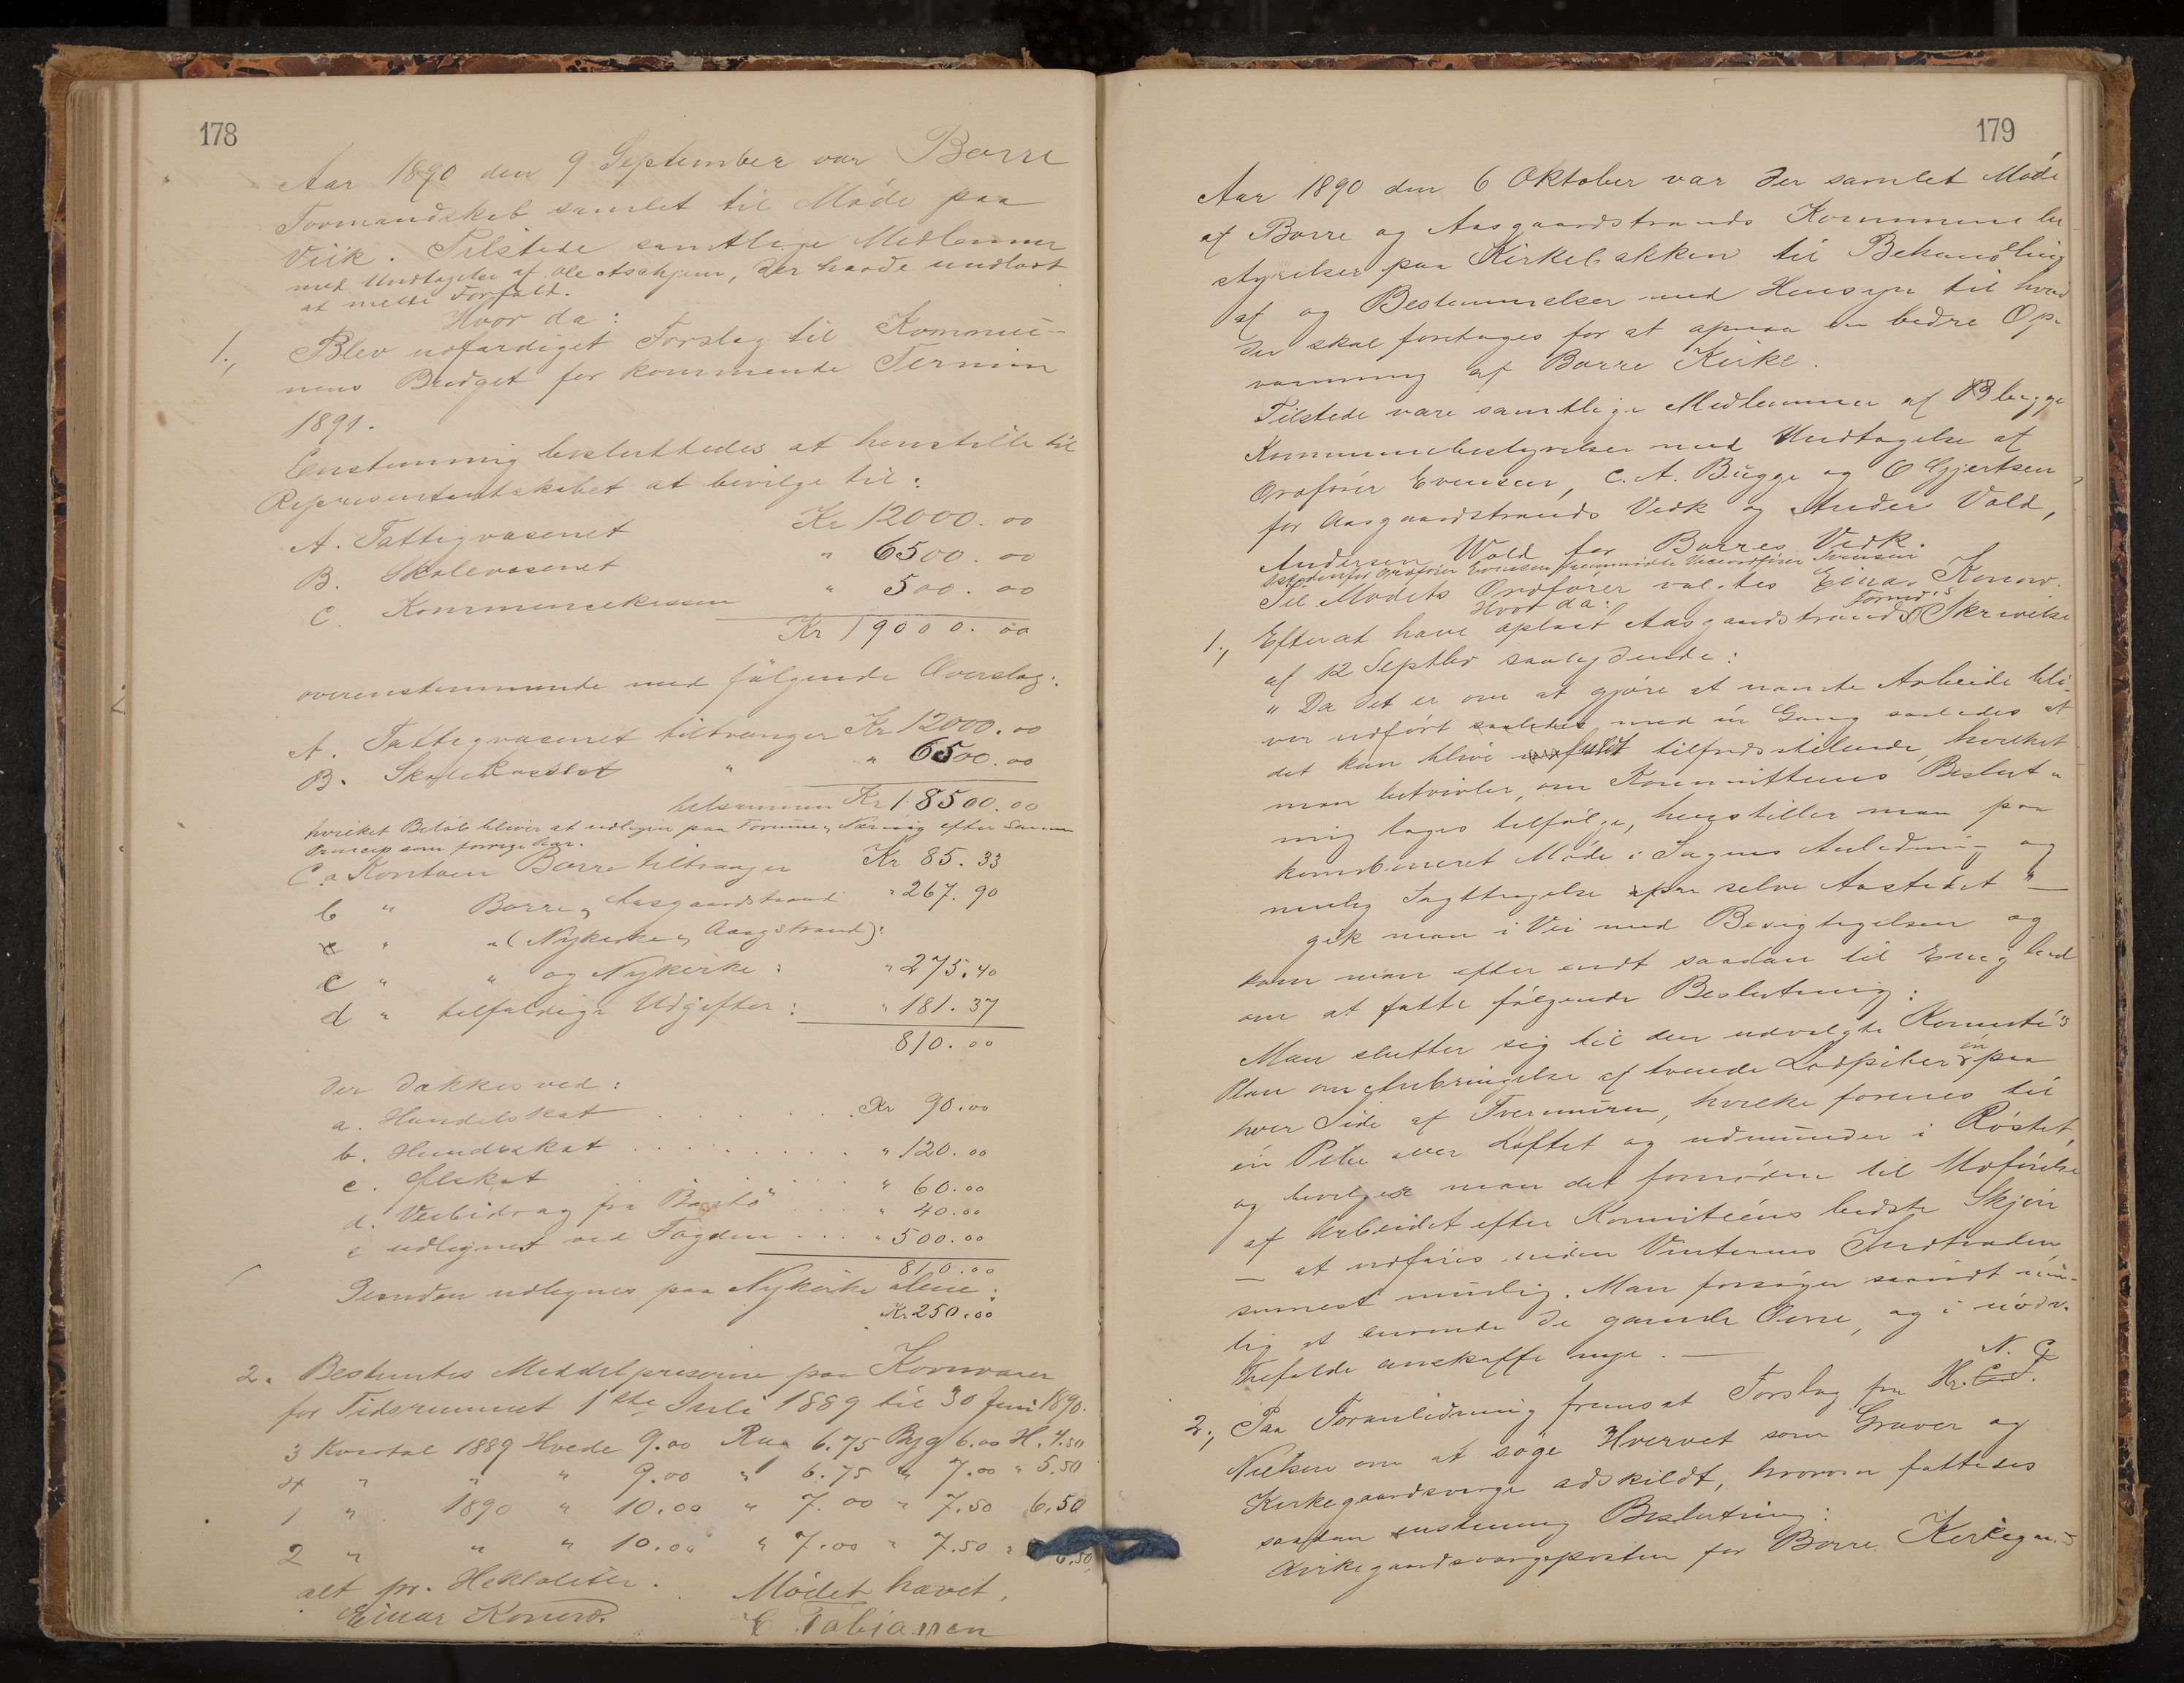 178
Aar 1890 den 9 September var Borre
Formandskab samlet til Møde paa
Viik. Tilstede samtlige Medlemmer
med Undtagelse af Ole Aschjem, der havde undladt
at melde Forfald.
Hvor da:
1., Blev udfærdiget Forslag til Kommu-
nens Budget for kommende Termin
1891.
Enstemmig besluttedes at henstille til
Representantskabet at bevilge til:
A. Fattigvæsenet Kr 12000.00
B. Skolevæsenet " 6500.00
C. Kommunekassen " 500.00
Kr 19000.00
overenstemmende med følgende Overslag:
A. Fattigvæsenet tiltrænger Kr 12000.00
B. Skolekassen " " 6500.00
tilsammen Kr 18500.00
hvilket Beløb bliver at udligne paa Formue og Næring efter samme
Princip som forrige Aar.
C. a Kontoen Borre tiltrænger Kr 85.33
b " Borre og Aasgaardstrand " 267.90
c " " (Nykirke og Aasgstrand):
c " " og Nykirke: " 275.40
d " tilfældige Udgifter: " 181.37
810.00
der dækkes ved:
a. Handelskat Kr 90.00
b. Hundeskat " 120.00
c. Ølskat " 60.00
d. Veibidrag fra "Bastø" " 40.00
e udlignet ved Fogden " 500.00
810.00
Desuden udlignes paa Nykirke alene:
Kr 250.00
2. Bestemtes Middelpriserne paa Kornvarer
for Tidsrummet 1ste Juli 1889 til 30 Juni 1890.
3 Kvartal 1889 Hvede 9.00 Rug 6.75 Byg 6.00 H. 4.50
4 " " " 9.00 " 6.75 " 7.00 " 5.50
1 " 1890 " 10.00 " 7.00 " 7.50 6.50
2 " " " 10.00 " 7.00 " 7.50 " 6.50
alt pr. Hektoliter. Mødet hævet.
Einar Konow. C. Fabiansen
179
Aar 1890 den 6 Oktober var der samlet Møde
af Borre og Aasgaardstrands Kommunebe
styrelser paa Kirkebakken til Behandling
af og Bestemmelser med Hensyn til hvad
der skal foretages for at opnaa en bedre Op-
varmning af Borre Kirke.
Tilstede vare samtlige Medlemmer af begge
Kommunebestyrelser med Undtagelse af
Ordfører Evensen, C. A. Bugge og O Gjertsen,
for Aasgaardstrands Vedk og Anders Vold,
Andersen Wold for Borres Vedk.
Istedenfor Ordfører Evensen fremmødte Viceordfører Svensen
Til Mødets Ordfører valgtes Einar Konow.
Hvor da:
1., Efter at have oplæst Aasgaardstrands Formd's Skrivelse
af 12 Septbr saalydende:
" Da det er om at gjøre at nævnte Arbeide bli-
ver udført saaledes med én Gang saaledes at
det kan blive fuldt tilfredsstillende, hvilket
man betvivler, om Kommitteens Beslut-
ning tages tilfølge, henstiller man paa
kombineret Møde i Sagens Anledning og
mulig Iagttagelse paa selve Aastedet "—
gik man i Vei med Besigtigelsen og
kom man efter endt saadan til Enighed
om at fatte følgende Beslutning:
Man slutter sig til den udvalgte Komite's
Plan om Anbringelse af tvende Lodpiber én paa
hver Side af Tvermuren, hvilke forenes til
én Pibe over Loftet og udmunder i Røstet,
og bevilger man det fornødne til Udførelse
af Arbeidet efter Komiteéns bedste Skjøn
— at udføres inden Vinterens Indtræden
snarest mulig. Man forsøger saavidt mu-
lig at anvende de gamle Ovne, og i nødv.
Tilfælde anskaffe nye. —
2., Paa Foranledning fremsat Forslag fra Hr. N. G
Nielsen om at søge Hvervet som Graver og
Kirkegaardsverge adskildt, hvorom fattedes
saadan enstemmig Beslutning:
Kirkegaardsvergeposten for Borre Kirkegaard